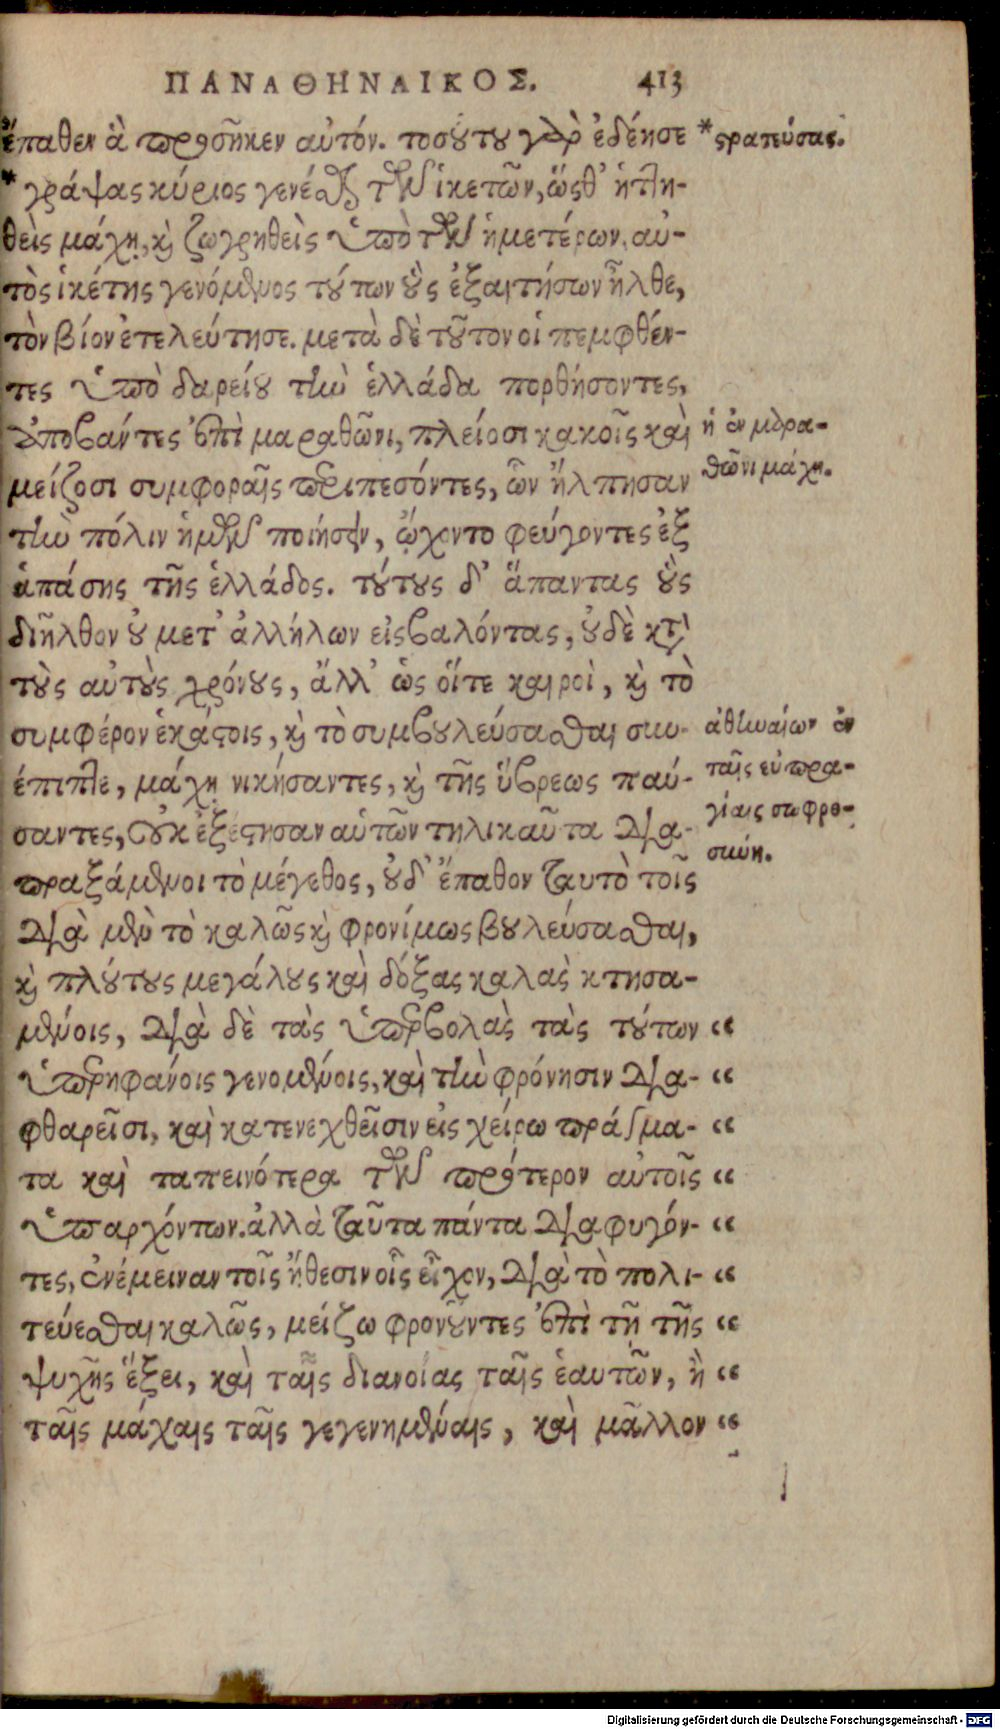 ΠΑΝΑΘΗΝΑΙΚΟΣ. 413
ἔπαθεν ἃ προσῆκεν αὐτόν. τοσούτου γὰρ ἐδέησε
* γράψας κύριος γενέσθαι τῶν ἱκετῶν, ὥσθ' ἡττη-
θεὶς μάχῃ, καὶ ζωγρηθεὶς ὑπὸ τῶν ἡμετέρων, αὐ-
τὸς ἱκέτης γενόμενος τούτων οὓς ἐξαιτήσων ἦλθε,
τὸν βίον ἐτελεύτησε. μετὰ δὲ τοῦτον οἱ πεμφθέν-
τες ὑπὸ δαρείου τὴν ἑλλάδα πορθήσοντες,
ἀποβάντες ἐπὶ μαραθῶνι, πλείοσι κακοῖς καὶ
μείζοσι συμφοραῖς περιπεσόντες, ὧν ἤλπησαν
τὴν πόλιν ἡμῶν ποιήσειν, ᾤχοντο φεύγοντες ἐξ
ἁπάσης τῆς ἑλλάδος. τούτους δ' ἅπαντας οὓς
διῆλθον οὐ μετ' ἀλλήλων εἰσβαλόντας, οὐδὲ κατὰ
τοὺς αὐτοὺς χρόνους, ἀλλ' ὡς οἵτε καιροὶ, καὶ τὸ
συμφέρον ἑκάστοις, καὶ τὸ συμβουλεύσασθαι συν-
έπιπτε, μάχῃ νικήσαντες, καὶ τῆς ὕβρεως παύ-
σαντες, οὐκ ἐξέστησαν αὑτῶν τηλικαῦτα δια-
πραξάμενοι τὸ μέγεθος, οὐδ' ἔπαθον ταυτὸ τοῖς
διὰ μὲν τὸ καλῶς καὶ φρονίμως βουλεύσασθαι,
καὶ πλούτους μεγάλους καὶ δόξας καλὰς κτησα-
μένοις, διὰ δὲ τὰς ὑπερβολὰς τὰς τούτων “
ὑπερηφάνοις γενομένοις, καὶ τὴν φρόνησιν δια- “
φθαρεῖσι, καὶ κατενεχθεῖσιν εἰς χείρω πράγμα- “
τα καὶ ταπεινότερα τῶν πρότερον αὐτοῖς “
ὑπαρχόντων. ἀλλὰ ταῦτα πάντα διαφυγόν- “
τες, ἐνέμειναν τοῖς ἤθεσιν οἷς εἶχον, διὰ τὸ πολι- “
τεύεσθαι καλῶς, μείζω φρονοῦντες ἐπὶ τῇ τῆς “
ψυχῆς ἕξει, καὶ ταῖς διανοίας ταῖς ἑαυτῶν, ἢ “
ταῖς μάχαις ταῖς γεγενημέναις, καὶ μᾶλλον “
* στρατεύσας.
ἡ ἐν μαρα-
θῶνι μάχη.
ἀθηναίων ἐν
ταῖς εὐπρα-
γίαις σωφρο-
σύνη.
Digitalisierung gefördert durch die Deutsche Forschungsgemeinschaft - DFG